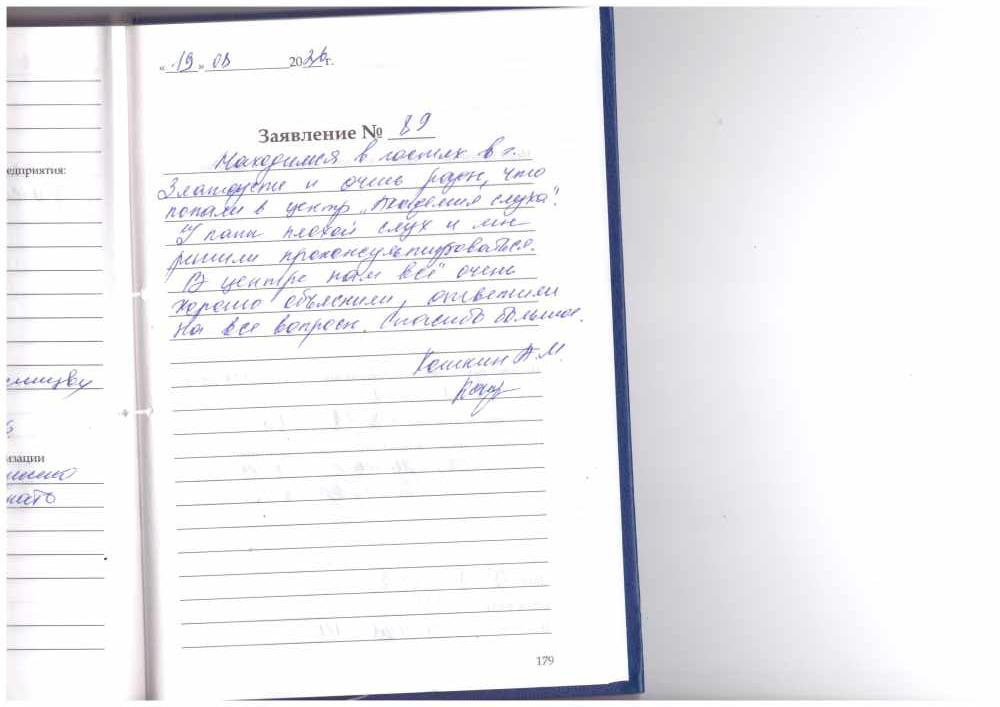 « 19 » 03 2026 г.
Заявление № 89
Находимся в гостях в г.
Златоусте и очень рады, что
попали в центр „Академия слуха".
У папы плохой слух и мы
решили проконсультироваться.
В центре нам всё очень
хорошо объяснили, ответили
На все вопросы. Спасибо большое.
А.М.
едприятия:
изации
179